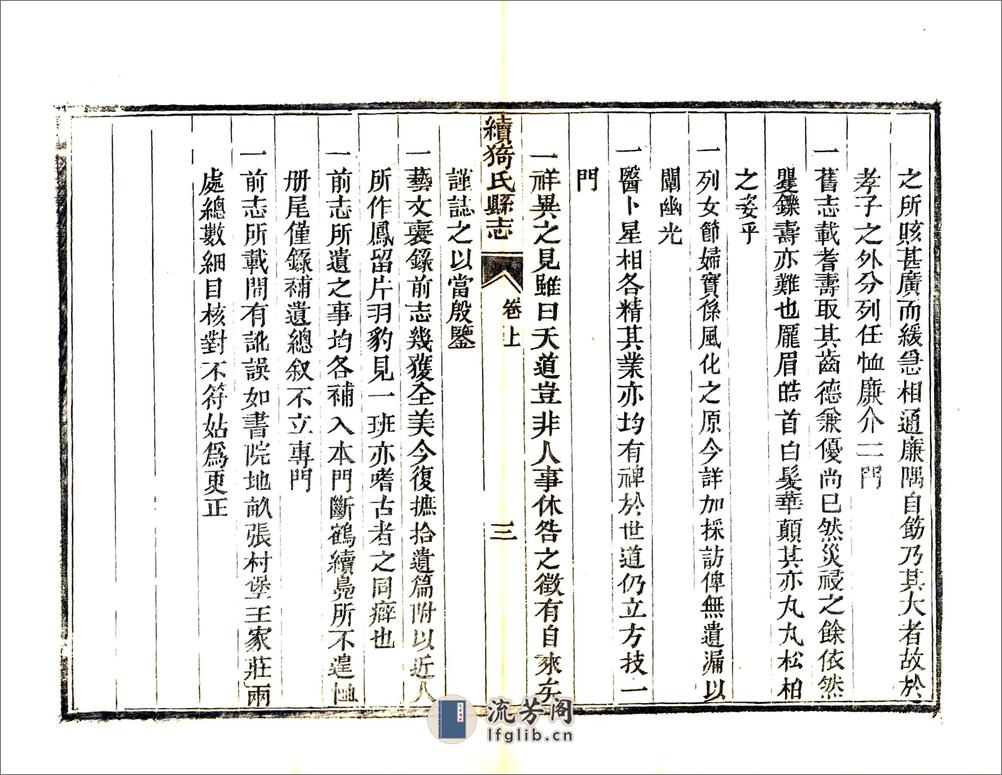 之所賅甚廣而緩急相通廉隅自飭乃其大者故於
孝子之外分列任恤廉介二門
一舊志載耆壽取其齒德兼優尚已然災祲之餘依然
矍鑠壽亦難也龎眉皓首白髮華顛其亦丸丸松柏
之姿乎
一列女節婦實係風化之原今詳加採訪俾無遺漏以
闡幽光
一醫卜星相各精其業亦均有裨於世道仍立方技一
門
一祥異之見雖曰天道豈非人事休咎之徵有自來矣
續猗氏縣志
卷上
三
謹誌之以當殷鑒
一藝文裒錄前志幾獲全美今復摭拾遺篇附以近人
所作鳳留片羽豹見一班亦嗜古者之同癖也
一前志所遺之事均各補入本門斷鶴續鳧所不遑
册尾僅錄補遺總叙不立專門
一前志所載間有訛誤如書院地畝張村堡王家莊兩
處總數細目核對不符姑爲更正
流芳阁
lfglib.cn